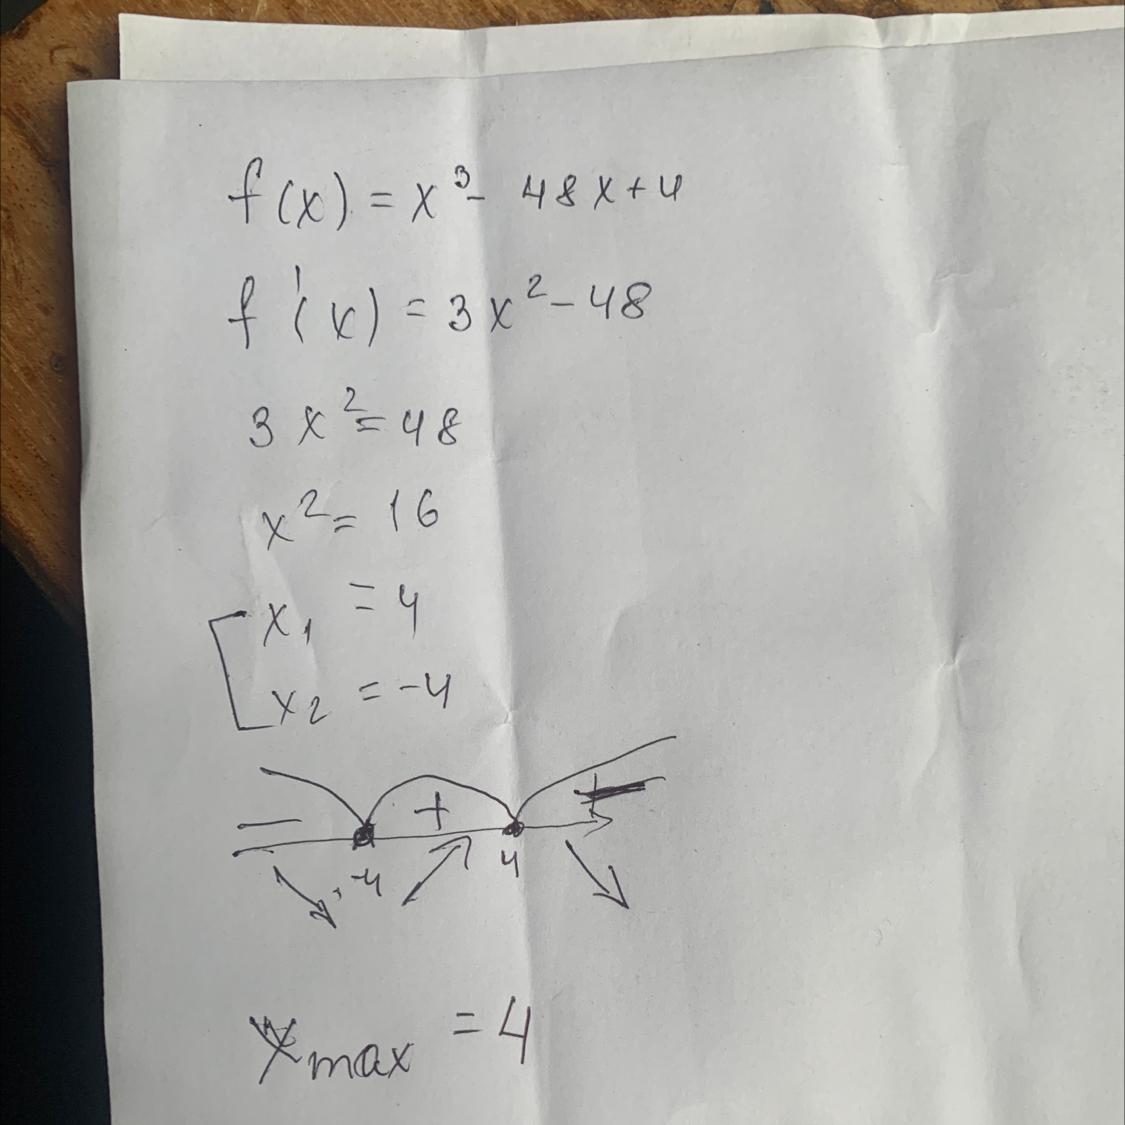 f(x) = x³ - 48x + 4
f'(x) = 3x² - 48
3x² = 48
x² = 16
x₁ = 4
x₂ = -4
— + —
-4 4
xmax = 4